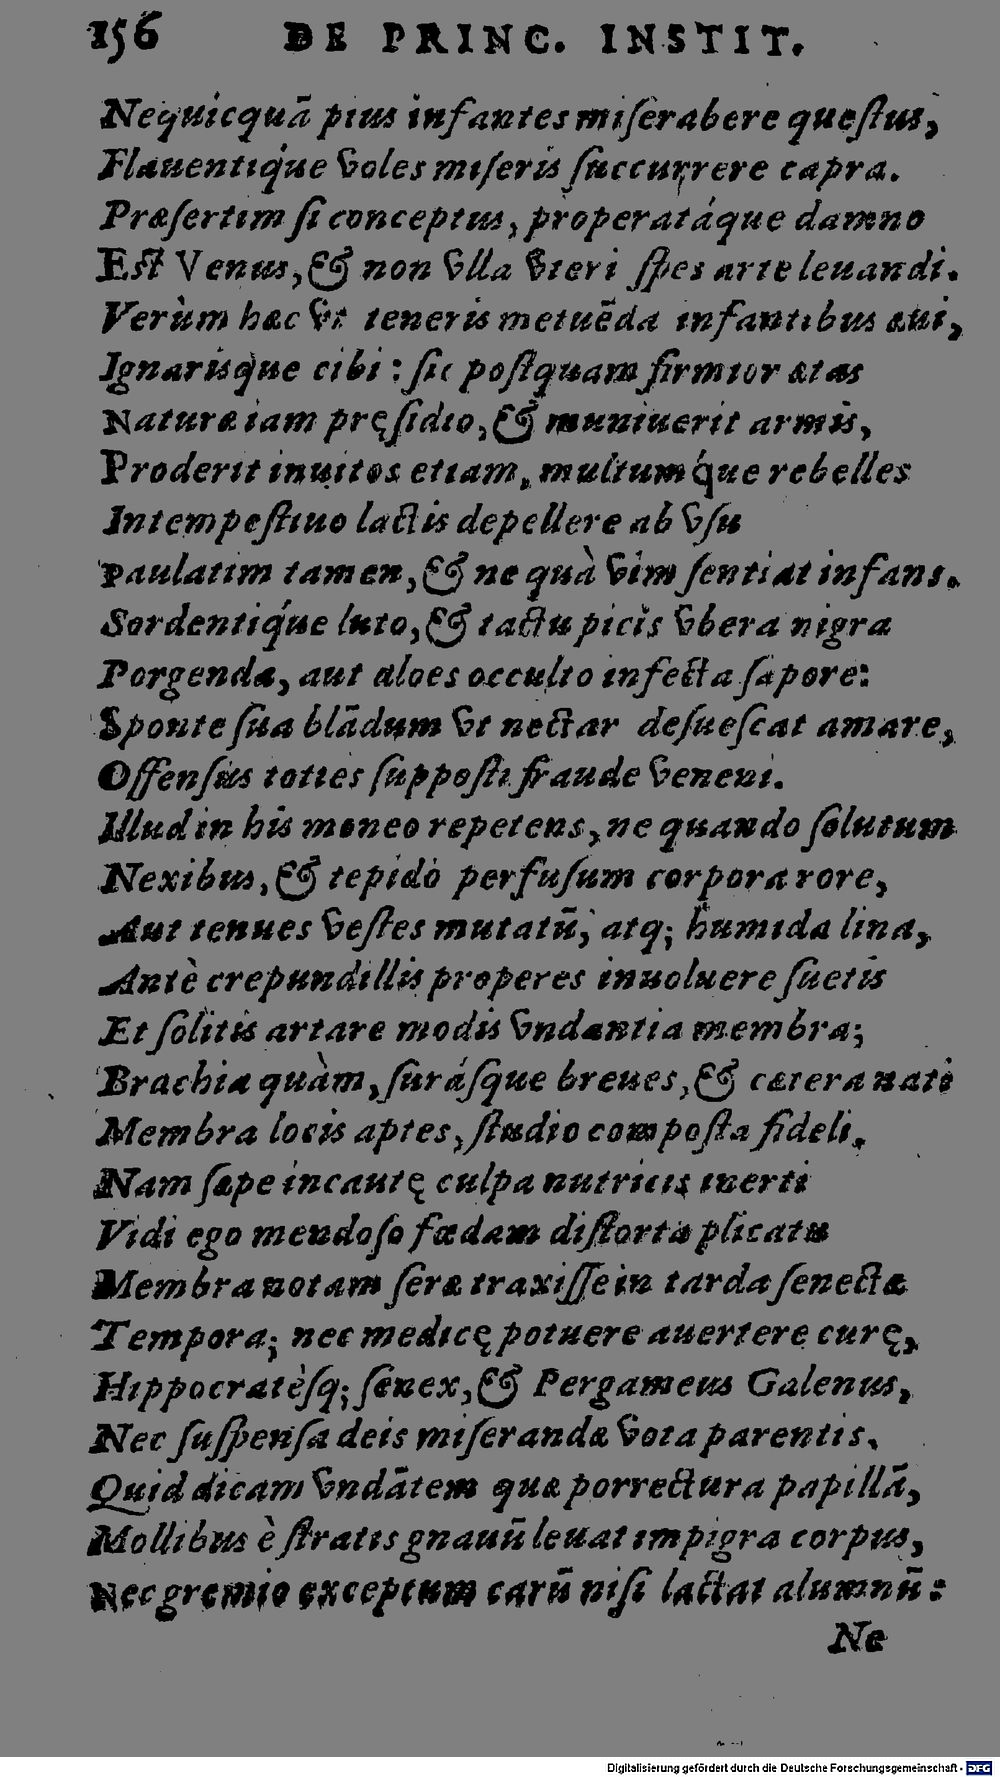 156 DE PRINC. INSTIT.
Nequicquā pius infantes miſerabere queſtus,
Flauentiq́ue voles miſeris ſuccurrere capra.
Præſertim ſi conceptus, properatáque damno
Eſt Venus, & non vlla vteri ſpes arte leuandi.
Verùm hæc vt teneris metuēda infantibus æui,
Ignarisque cibi: ſic poſtquam firmior ætas
Naturæ iam pręſidio, & muniuerit armis,
Proderit inuitos etiam, multumq́ue rebelles
Intempeſtiuo lactis depellere ab vſu
Paulatim tamen, & ne quà vim ſentiat infans.
Sordentiq́ue luto, & tactu picis vbera nigra
Porgenda, aut aloes occulto infecta ſapore:
Sponte ſua blādum vt nectar deſueſcat amare,
Offenſus toties ſuppoſti fraude veneni.
Illud in his moneo repetens, ne quando ſolutum
Nexibus, & tepido perfuſum corpora rore,
Aut tenues veſtes mutatū, atq; humida lina,
Antè crepundillis properes inuoluere ſuetis
Et ſolitis artare modis vndantia membra;
Brachia quàm, ſuráſque breues, & cætera nati
Membra locis aptes, ſtudio compoſta fideli.
Nam ſæpe incautę culpa nutricis inerti
Vidi ego mendoſo fœdam diſtorta plicatu
Membra notam ſeræ traxiſſe in tarda ſenectæ
Tempora; nec medicę potuere auertere curę,
Hippocratèſq; ſenex, & Pergameus Galenus,
Nec ſuſpenſa deis miſerandæ vota parentis.
Quid dicam vndātem quæ porrectura papillā,
Mollibus è ſtratis gnauū leuat impigra corpus,
Nec gremio exceptum carū niſi lactat alumnū:
Ne
Digitalisierung gefördert durch die Deutsche Forschungsgemeinschaft - DFG